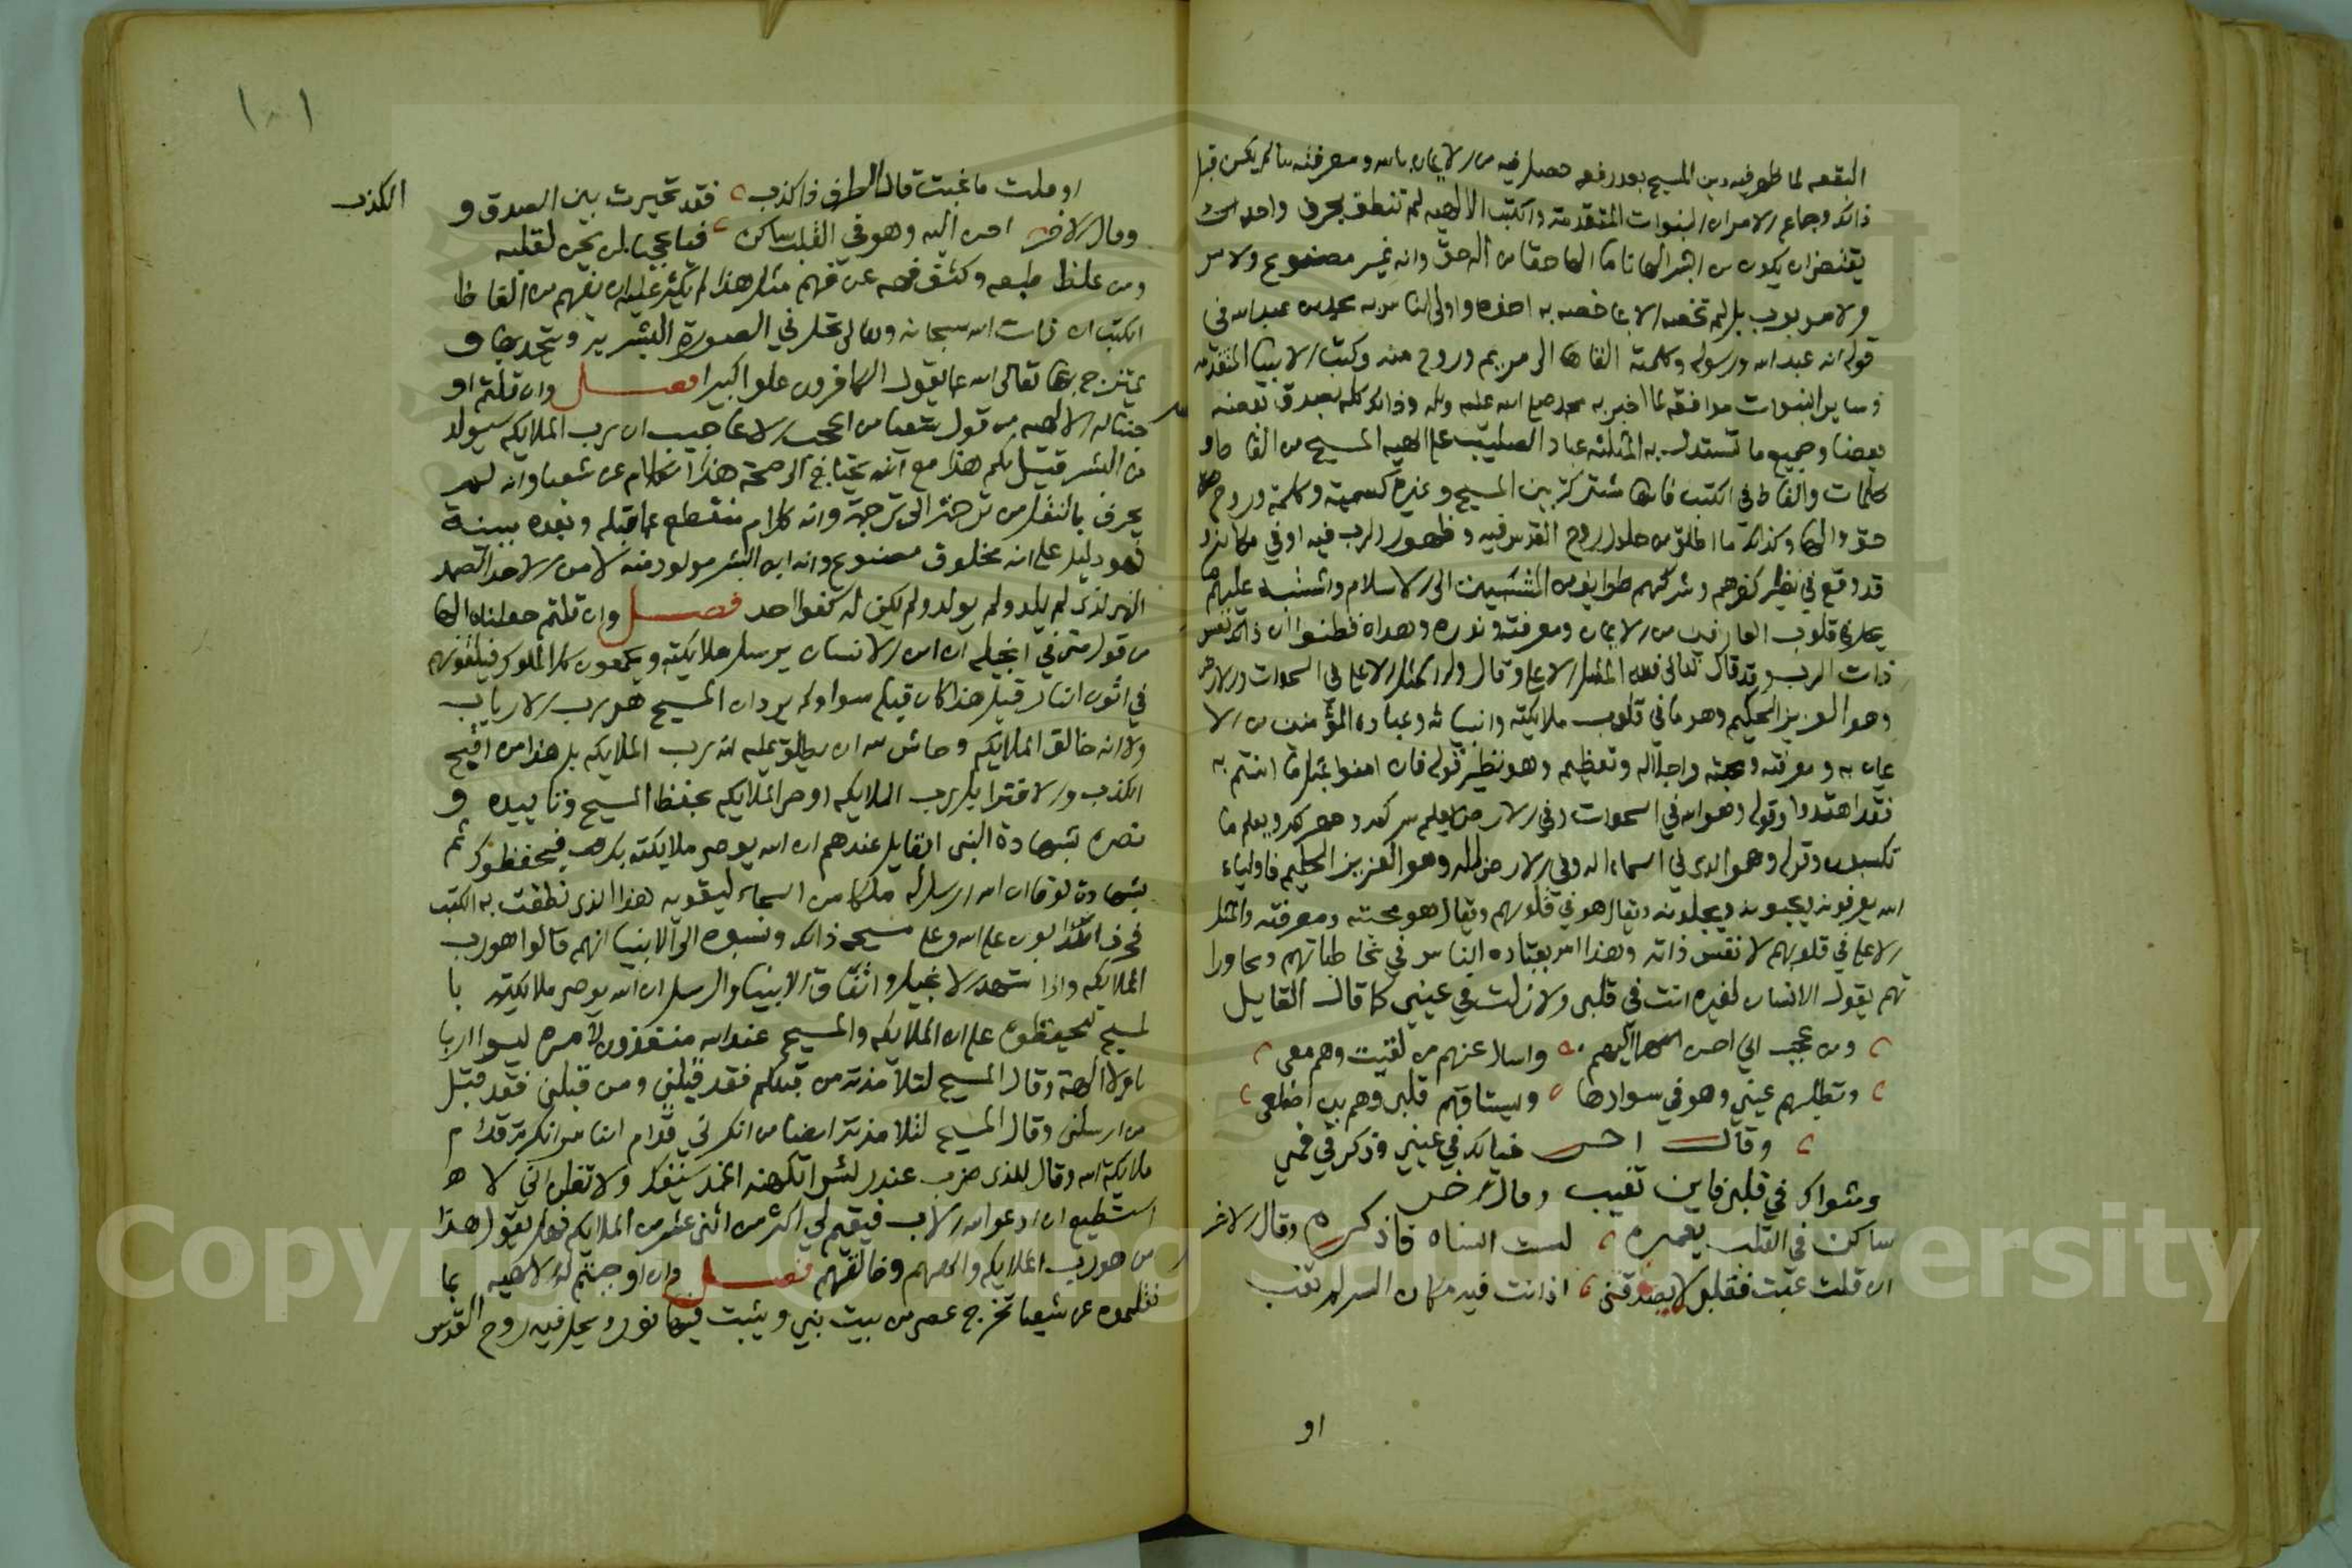 البقعه لما ظهر فيه دين المسيح بعد رفعه حصل فيه من الايمان بالله ومعرفته ما لم يكن قبل
ذلك وجماع الامر ان النبوات المتقدمة والكتب الالهيه لم تنطق بحرف واحد
يقتضي ان يكون ابن البشر الها تاما الها حقا من اله حق وانه غير مصنوع ولا
ولا مربوب بل لم تخصه الا بما خصه به اخوه واولى الناس به محمد بن عبد الله في
قوله انه عبد الله ورسوله وكلمته القاها الى مريم وروح منه وكتب الانبيا المتقدمه
وساير النبوات موافقه لما اخبر به محمد صلى الله عليه وسلم وذلك كله يصدق بعضه
بعضا وجميع ما تستدل به المثلثه عباد الصليب على الهيه المسيح من الفاظ و
كلمات والفاظ في الكتب فانها مشتركة بين المسيح وغيره كتسميته وكلمة وروح
حق والها وكذلك ما اطلق من حلول روح القدس فيه وظهور الرب فيه او في مكانه و
قد وقع في نظير كفرهم وشركهم طوايف من المنتسبين الى الاسلام واشتبه عليهم ما
يحل في قلوب العارفين من الايمان ومعرفته ونوره وهداه فظنوا ان ذلك نفس
ذات الرب وقد قال تعالى ولله المثل الاعلى وقال وله المثل الاعلى في السموات والارض
وهو العزيز الحكيم وهو ما في قلوب ملايكته وانبيائه وعباده المؤمنين من الا
يمان به ومعرفته ومحبته واجلاله وتعظيمه وهو نظير قوله فان امنوا بمثل ما امنتم به
فقد اهتدوا وقوله وهو الله في السموات وفي الارض يعلم سركم وجهركم ويعلم ما
تكسبون وقوله وهو الذي في السماء اله وفي الارض اله وهو العزيز الحكيم فاولياء
الله يعرفونه ويحبونه ويجلونه ويقال هو في قلوبهم ويقال هو محبته ومعرفته والمثل
الاعلى في قلوبهم لا نفس ذاته وهذا امر يعتاده الناس في مخاطباتهم ومحاورا
تهم يقول الانسان لغيره انت في قلبي ولا زلت في عيني كما قال القايل
ومن عجب اني احن اليهم واسال عنهم من لقيت وهم معي
وتطلبهم عيني وهو في سوادها ويشتاقهم قلبي وهم بين اضلعي
وقال اخر خيالك في عيني وذكرك في فمي
ومثواك في قلبي فاين تغيب وقال اخر
ساكن في القلب يعمره لست انساه فاذكره وقال الاخر
ان قلت غبت فقلبي لا يصدقني اذ انت فيه مكان السر لم تغب
او
او قلت ما غبت قال الطرف ذا كذب فقد تحيرت بين الصدق و الكذب
وقال الاخر احن اليه وهو في القلب ساكن فيا عجبا لمن يحن لقلبه
ومن غلظ طبعه وكثف فهمه عن فهم مثل هذا لم يكثر عليه ان يفهم من الفاظ
الكتب ان ذات الله سبحانه وتعالى تحل في الصورة البشرية وتتحد بها و
تمتزج بها تعالى الله عما يقول الكافرون علوا كبيرا فصل وان قلتم او
جبنا له الالهيه من قول شعيا من اعجب الاعاجيب ان رب الملايكه سيولد
من البشر قيل لكم هذا مع انه يحتاج الى صحة هذا الكلام عن شعيا وانه لم
يحرف بالنقل من ترجمة الى ترجمة وانه كلام منقطع عما قبله وبعده ببينة
فهو دليل على انه مخلوق مصنوع وانه ابن البشر مولود منه لا من الاحد الصمد
الذي لم يلد ولم يولد ولم يكن له كفوا احد فصل وان قلتم جعلناه الها
من قول متى في انجيله ان ابن الانسان يرسل ملايكته ويجمعون كل الملوك فيلقونهم
في اتون النار قيل هذا كالذي قبله سوا ولم يرد ان المسيح هو رب الارباب
ولا انه خالق الملايكه وحاش لله ان يطلق عليه انه رب الملايكه بل هذا من اقبح
الكذب والافترا بل رب الملايكه اوصى الملايكه بحفظ المسيح وتاييده و
نصره بشهادة النبي القايل عندهم ان الله يوصي ملايكته بك فيحفظوك ثم
بشهادة لوقا ان الله ارسل له ملكا من السماء ليقويه هذا الذي نطقت به الكتب
فحرف الكذابون على الله وعلى مسيحه ذلك ونسبوه الى الانبيا انهم قالوا هو رب
الملايكه واذا شهد الانجيل واتفاق الانبيا والرسل ان الله يوصي ملايكته با
لمسيح ليحفظوه علم ان الملايكه والمسيح عند الله منقذون لامره ليسوا اربا
با ولا الهة وقال المسيح لتلامذته من قبلكم فقد قبلني ومن قبلني فقد قبل
من ارسلني وقال المسيح لتلامذته ايضا من انكرني قدام الناس انكرته قدام
ملايكة الله وقال للذي ضرب عبد رئيس الكهنه اغمد سيفك ولا تظن اني لا
استطيع ان ادعو الله الاب فيقيم لي اكثر من اثنى عشر من الملايكه فهل يقول هذا
من هو رب الملايكه والههم وخالقهم فصل وان اوجبتم له الالهيه بما
نقلتموه عن شعيا تخرج عصى من بيت نبي وينبت فيها نور ويحل فيه روح القدس
Copyright © King Saud University